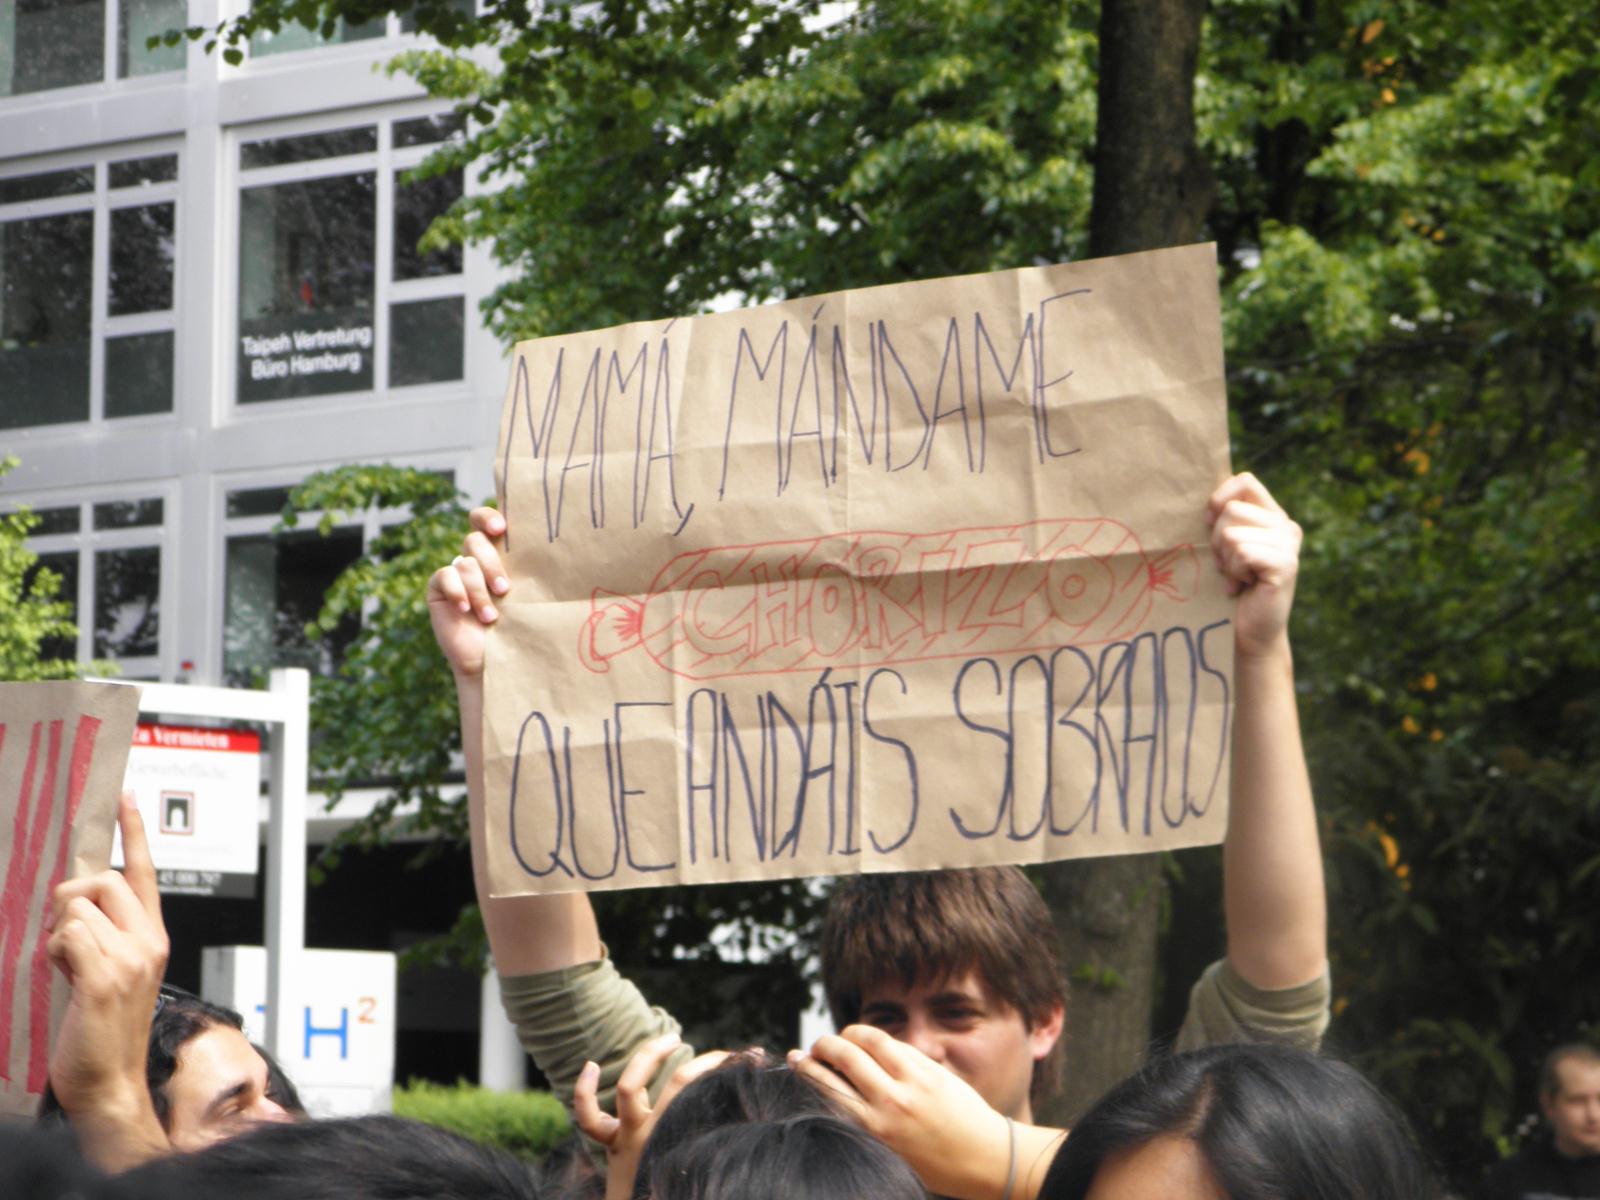 Taipeh Vertretung
Büro Hamburg
MAMÁ, MÁNDAME
CHORIZO
QUE ANDÁIS SOBRAOS
Zu Vermieten
Gewerbefläche
H²